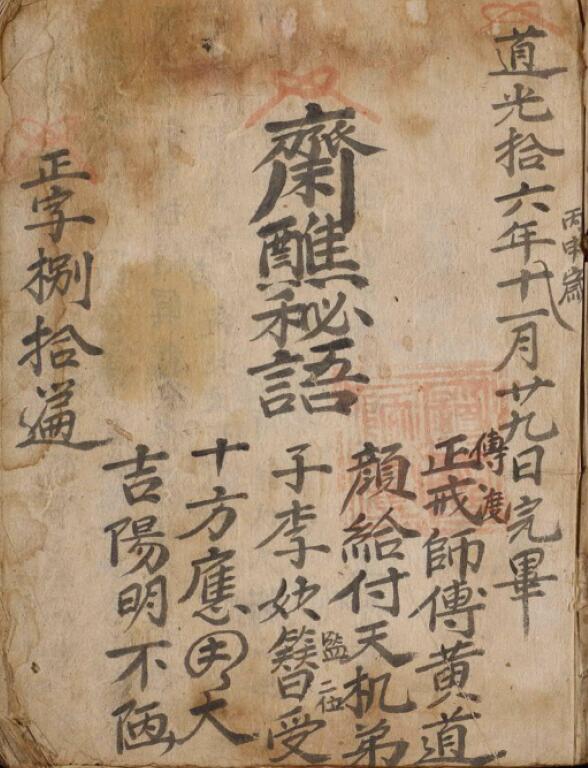 道光拾六年十一月廿九日完畢
丙申歲
傳度
正戒師傅黃道
顏給付天机弟
子李妙簪受
監 二位
十方應大
吉陽明不陋
齋醮秘語
正字捌拾遍